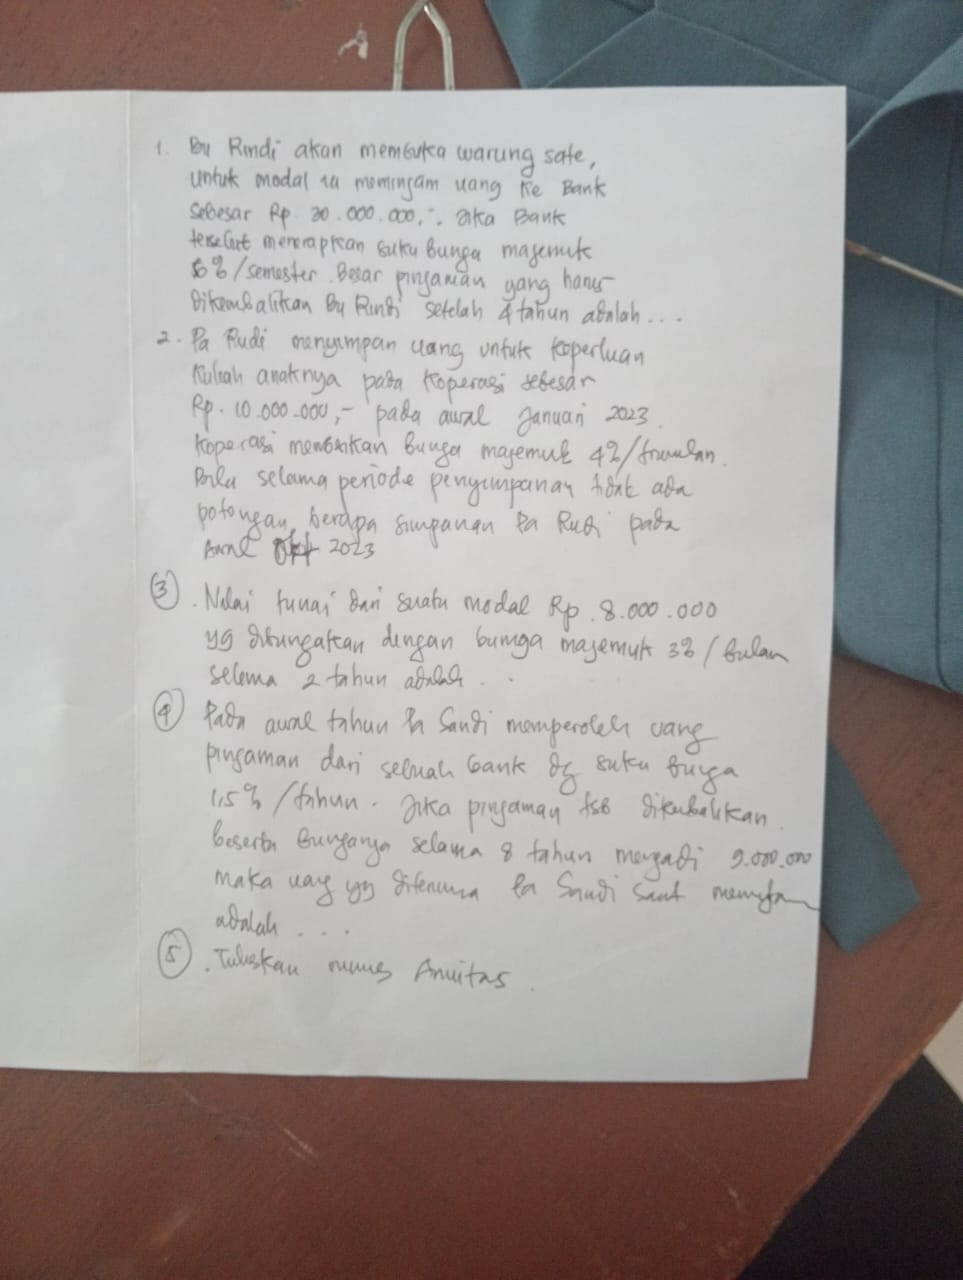 1. Bu Rindi akan membuka warung sate,
untuk modal ia meminjam uang ke Bank
sebesar Rp. 30.000.000,-. Jika Bank
tersebut menerapkan suku bunga majemuk
6%/semester. Besar pinjaman yang harus
Dikembalikan Bu Rindi setelah 4 tahun adalah...
2. Pa Rudi menyimpan uang untuk keperluan
Kuliah anaknya pada Koperasi sebesar
Rp. 10.000.000,- pada awal Januari 2023.
Koperasi memberikan bunga majemuk 4%/triwulan.
Bila selama periode penyimpanan tidak ada
potongan, berapa simpanan Pa Rudi pada
Awal Okt 2023
3. Nilai tunai dari suatu modal Rp. 8.000.000
yg dibungakan dengan bunga majemuk 3%/bulan
selama 2 tahun adalah...
4 Pada awal tahun Pa Sandi memperoleh uang
pinjaman dari sebuah bank dg suku bunga
1,5%/tahun. Jika pinjaman tsb dikembalikan
beserta bunganya selama 8 tahun menjadi 9.000.000
maka uang yg diterima Pa Sandi saat meminjam
adalah....
5. Tuliskan rumus Anuitas.